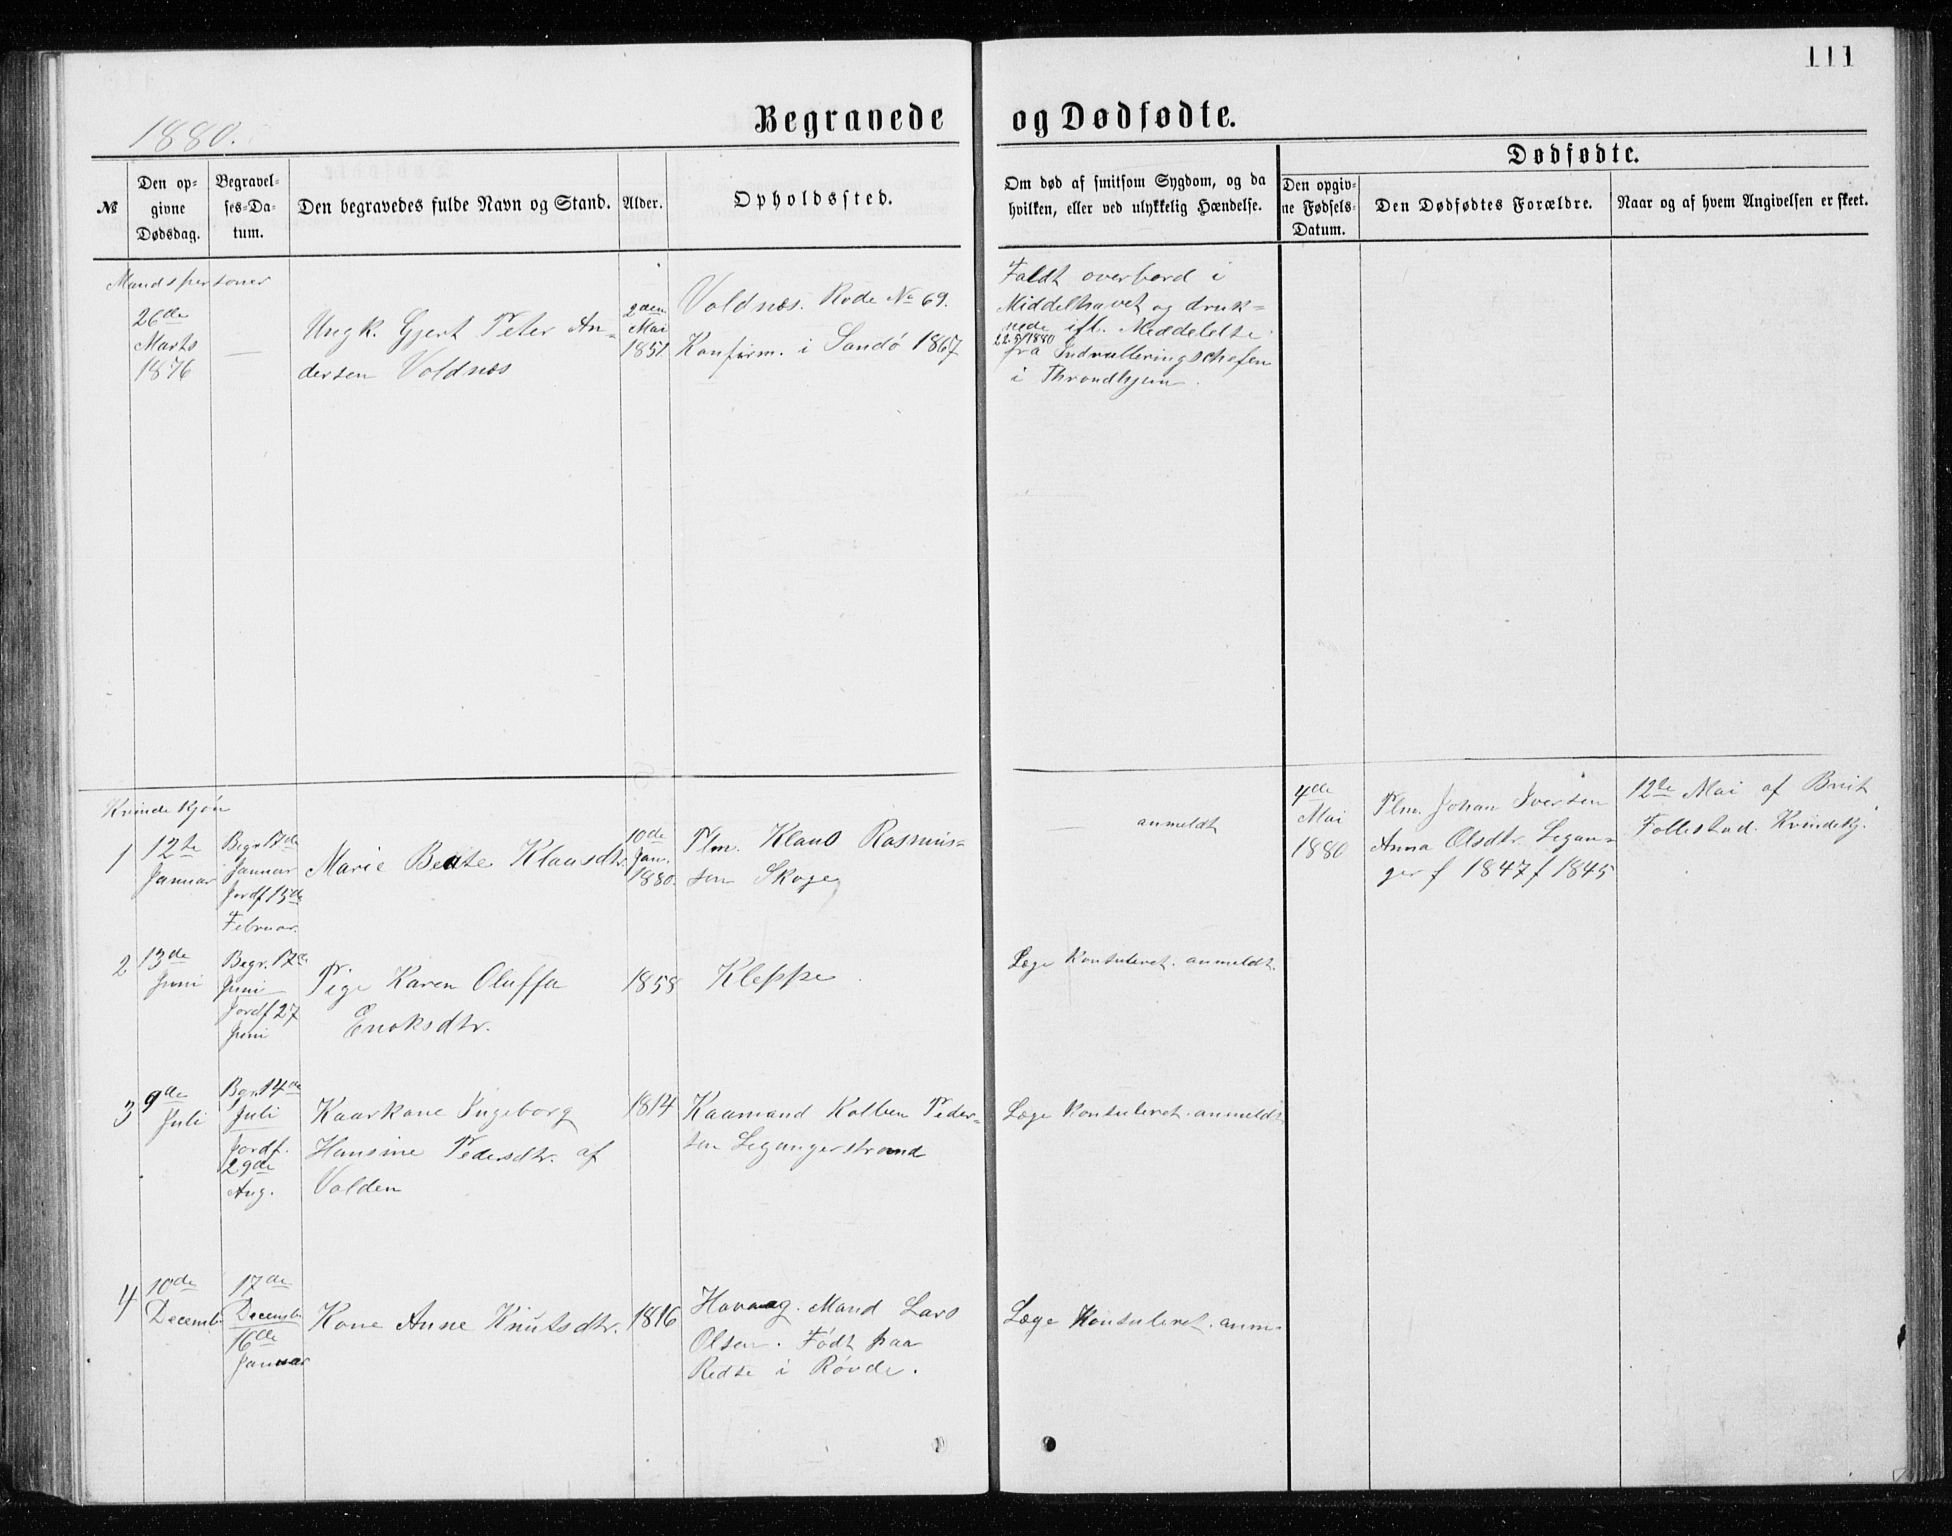 111
1880.
Begravede og Dødfødte.
Dødfødte.
№
Den op-
givne
Dødsdag.
Begravel-
ses-Da-
tum.
Den begravedes fulde Navn og Stand.
Alder.
Opholdssted.
Om død af smitsom Sygdom, og da
hvilken, eller ved ulykkelig Hændelse.
Den opgiv-
ne Fødsels-
Datum.
Den Dødfødtes Forældre.
Naar og af hvem Angivelsen er skeet.
Mandspersoner
26de
Marts
1876
—
Ungk. Gjert Peter An-
dersen Voldnæs
2den
Mai
1851
Voldnæs. Rode No 69.
Konfirm. i Sandö 1867
Faldt overbord i
Middelhavet og druk-
nede ifl. Meddelelse
22.5/1880
fra Indrulleringschefen
i Throndhjem.
Kvindekjön
1
12te
Januar
Begr. 17de
Januar
Jordf 15de
Februar.
Marie Beate Klausdtr.
10de
Jan.
1880.
Plm. Klaus Rasmus-
sen Skoge
— anmeldt
4de
Mai
1880
Plm. Johan Iversen
Anna Olsdtr. Legan-
ger f 1847 f 1845
12te Mai af Brit
Follestad. Kvindekj.
2
13de
Juni
Begr. 17de
Juni
Jordf 27
Juni
Pige Karen Oluffa
Enoksdtr.
1858
Kleppe
Læge Konsuleret. anmeldt.
3
9de
Juli
Begr 14de
Juli
Jordf.
29de
Aug.
Kaarkone Ingeborg
Hansine Pedersdtr. af
Volden
1814
Kaamand Kolben Peder-
sen Legangerstrand
Læge Konsuleret. anmeldt
4
10de
Decemb.
17de
Decemb.
16de
Januar
Kone Anne Knutsdtr.
1816
Havaag. Mand Lars
Olsen. Født paa
Redse i Røvde.
Læge Konsuleret. anm.